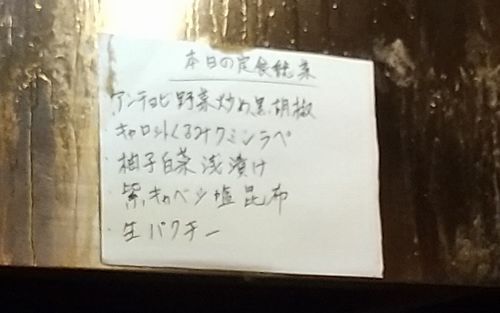 本日の定食総菜
アンチョビ野菜炒め黒胡椒
キャロットくるみクミンラペ
柚子白菜浅漬け
紫キャベツ塩昆布
生パクチー